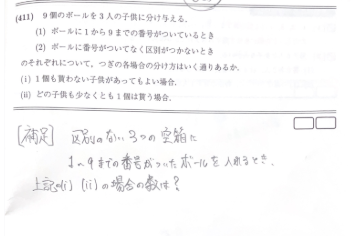 (411) 9個のボールを3人の子供に分け与える.
(1) ボールに1から9までの番号がついているとき
(2) ボールに番号がついてなく区別がつかないとき
のそれぞれについて, つぎの各場合の分け方はいく通りあるか.
(i) 1個も貰わない子供があってもよい場合.
(ii) どの子供も少なくとも1個は貰う場合.
[補足] 区別のない3つの空箱に
1〜9までの番号がついたボールを入れるとき、
上記の(i) (ii)の場合の数は?